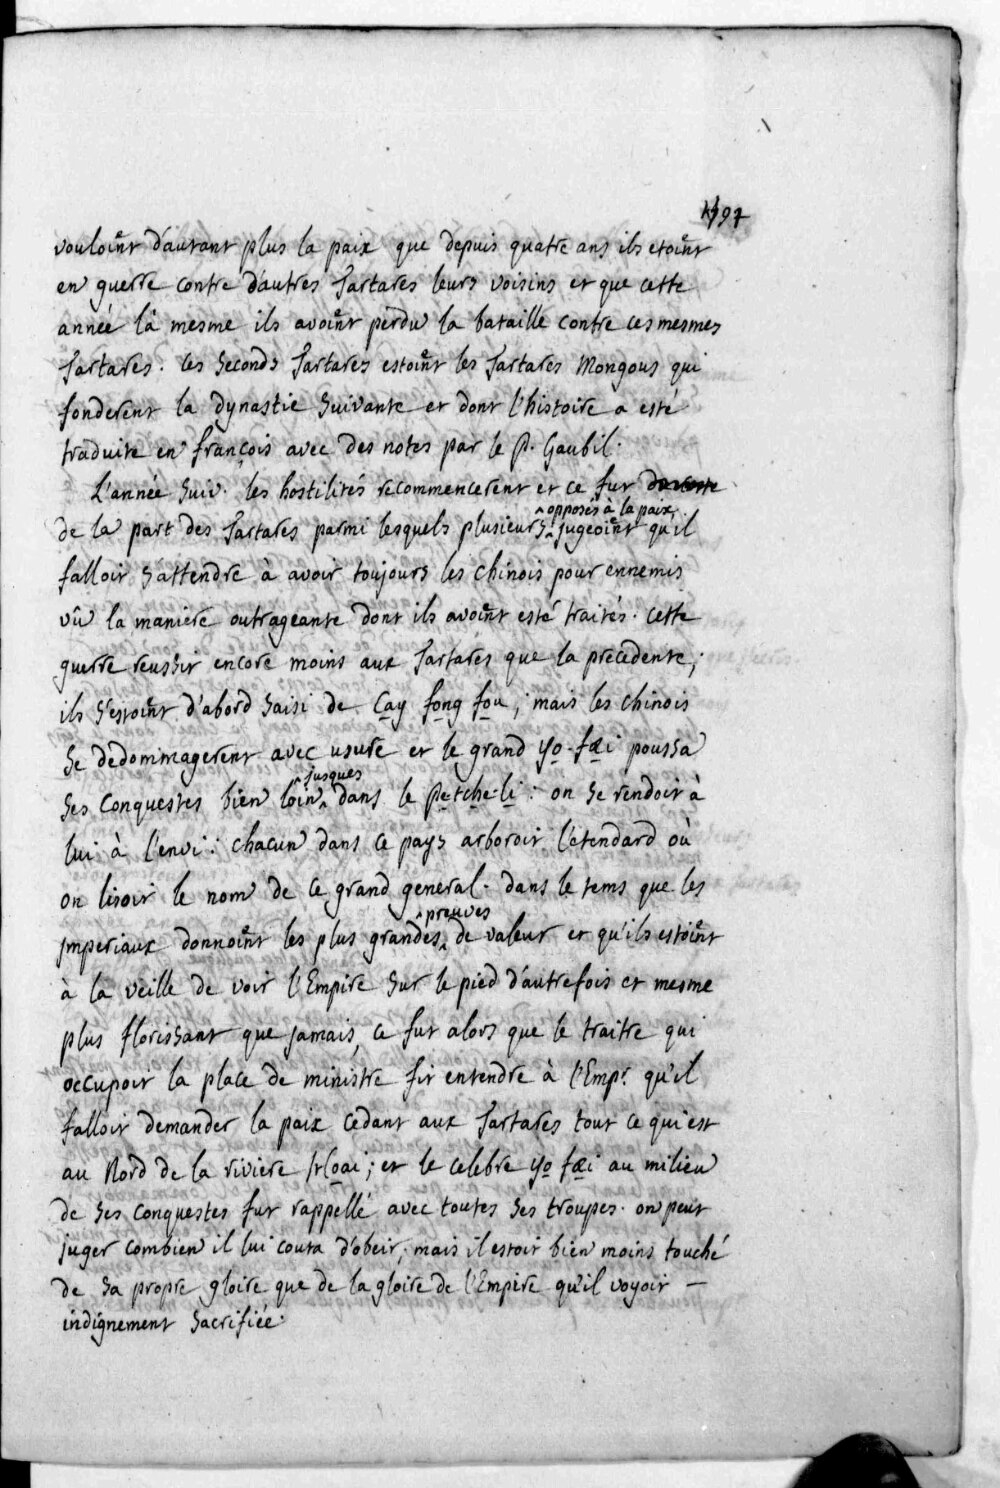 97
vouloint d'autant plus la paix que depuis quatre ans ils etoint
en guerre contre d'autres Tartares leurs voisins et que cette
année là mesme ils avoint perdu la bataille contre ces mesmes
Tartares. ces Seconds Tartares estoint les Tartares Mongous qui
fonderent la dynastie Suivante et dont l'histoire a esté
traduite en françois avec des notes par le P. Gaubil.
L'année Suiv. les hostilités recommencerent et ce fut
de la part des Tartares parmi lesquels plusieurs opposés à la paix jugeoint qu'il
falloit s'attendre à avoir toujours les chinois pour ennemis
vû la maniere outrageante dont ils avoint esté traités. cette
guerre reussit encore moins aux Tartares que la precedente;
ils s'estoint d'abord saisi de Cay fong fou; mais les chinois
se dedommagerent avec usure et le grand Yo-fæi poussa
ses conquestes bien loin jusques dans le Pe-tche-li: on se rendoit à
lui à l'envi: chacun dans ce pays arboroit l'étendard où
on lisoit le nom de ce grand general. dans le tems que les
Imperiaux donnoint les plus grandes preuves de valeur et qu'ils estoint
à la veille de voir l'Empire sur le pied d'autrefois et mesme
plus florissant que jamais, ce fut alors que le traitre qui
occupoit la place de ministre fit entendre à l'Emp.r qu'il
falloit demander la paix cedant aux Tartares tout ce qui est
au Nord de la riviere Hoai; et le celebre Yo fæi au milieu
de ses conquestes fut rappellé avec toutes ses troupes. on peut
juger combien il lui couta d'obeir; mais il estoit bien moins touché
de sa propre gloire que de la gloire de l'Empire qu'il voyoit —
indignement sacrifiée.